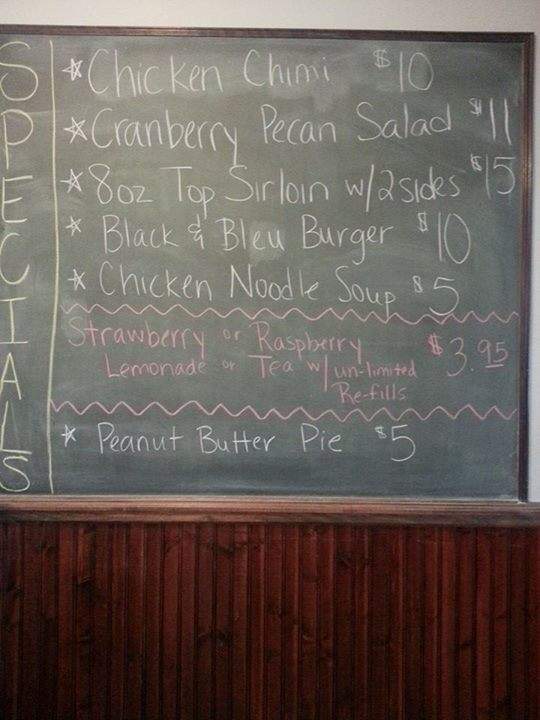 SPECIALS
* Chicken Chimi $10
* Cranberry Pecan Salad $11
* 8oz Top Sirloin w/2 sides $15
* Black & Bleu Burger $10
* Chicken Noodle Soup $5
Strawberry or Raspberry
Lemonade or Tea w/ un-limited Re-fills $3.95
* Peanut Butter Pie $5